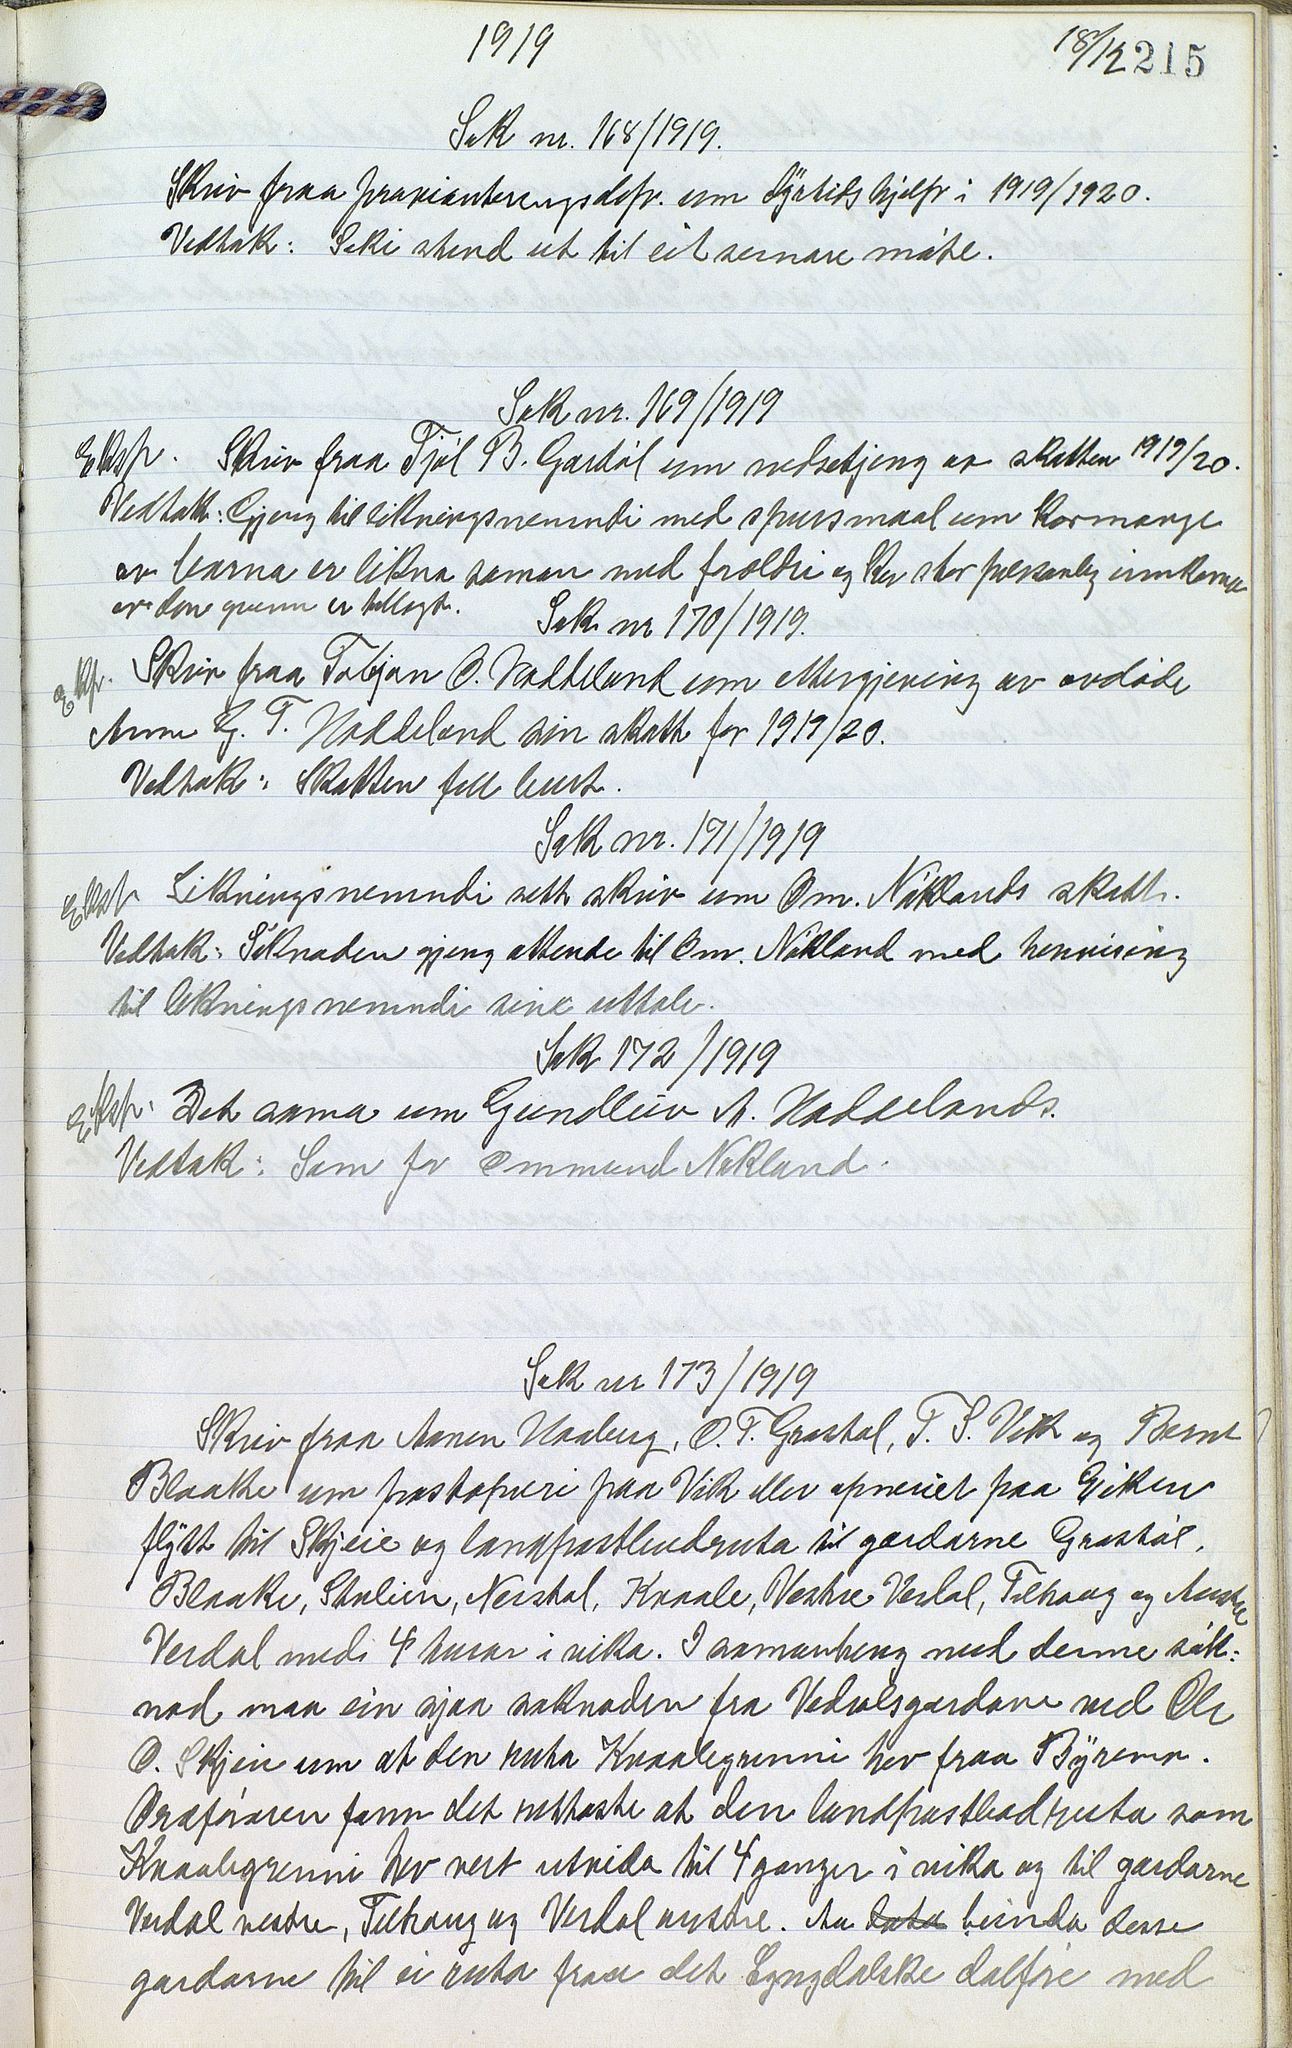 1919
18/12 215
Sak nr. 168/1919.
Skriv fraa provianteringsdepr. um dyrtidshjelp i 1919/1920.
Vedtak: Saki stend ut til eit sernare møte.
Sak nr. 169/1919
Eksp. Skriv fraa Tjøl B. Gardøl um nedsetjeng av skatten 1919/20.
Vedtak: Gjeng til likningsnemndi med spursmaal um kormange
av barna er likna saman med foreldri og kor stor personleg innkoma
av den grunn er tillagt.
Sak nr 170/1919.
Eksp. Skriv fraa Tobjøn O. Haddeland um ettergjeving av avdøde
Anne G. T. Haddeland sin skatt for 1919/20.
Vedtak: Skatten fell burt.
Sak nr. 171/1919
Eksp. Likningsnemndi sett skriv um Om. Nøklands skatt.
Vedtak: Søknaden gjeng attende til Om. Nøkland med henvising
til likningsnemndi sine uttale.
Sak 172/1919
Eksp. Det sama um Gundleiv A. Haddelands.
Vedtak: Som for Ommund Nøkland.
Sak nr 173/1919
Skriv fraa Aanen Haaberg, O. T. Grastøl, T. S. Vik og Bernt
Blaake um postopneri paa Vik eller opneriet paa Eiken
flytt til Skjeie og landpostbudruta til gardarne Grastøl,
Blaake, Stulein, Neistøl, Knaale, Vestre Verdal, Tilhaug og Austre
Verdal med 4 turar i vika. I samanheng med denne søk-
nad maa ein sjaa søknaden fra Verdalsgardane ved Ole
O. Skjeie um at den ruta Knaalegrenni hev fraa Byremo.
Ordføraren fann det rettaste at den landpostbodruta som
Knaalegrenni hev vert utvida til 4 ganger i vika og til gardarne
Verdal vestre, Tilhaug og Verdal austre. Aa binda desse
gardarne til ei ruta fraa det Lyngdalske dalføre med